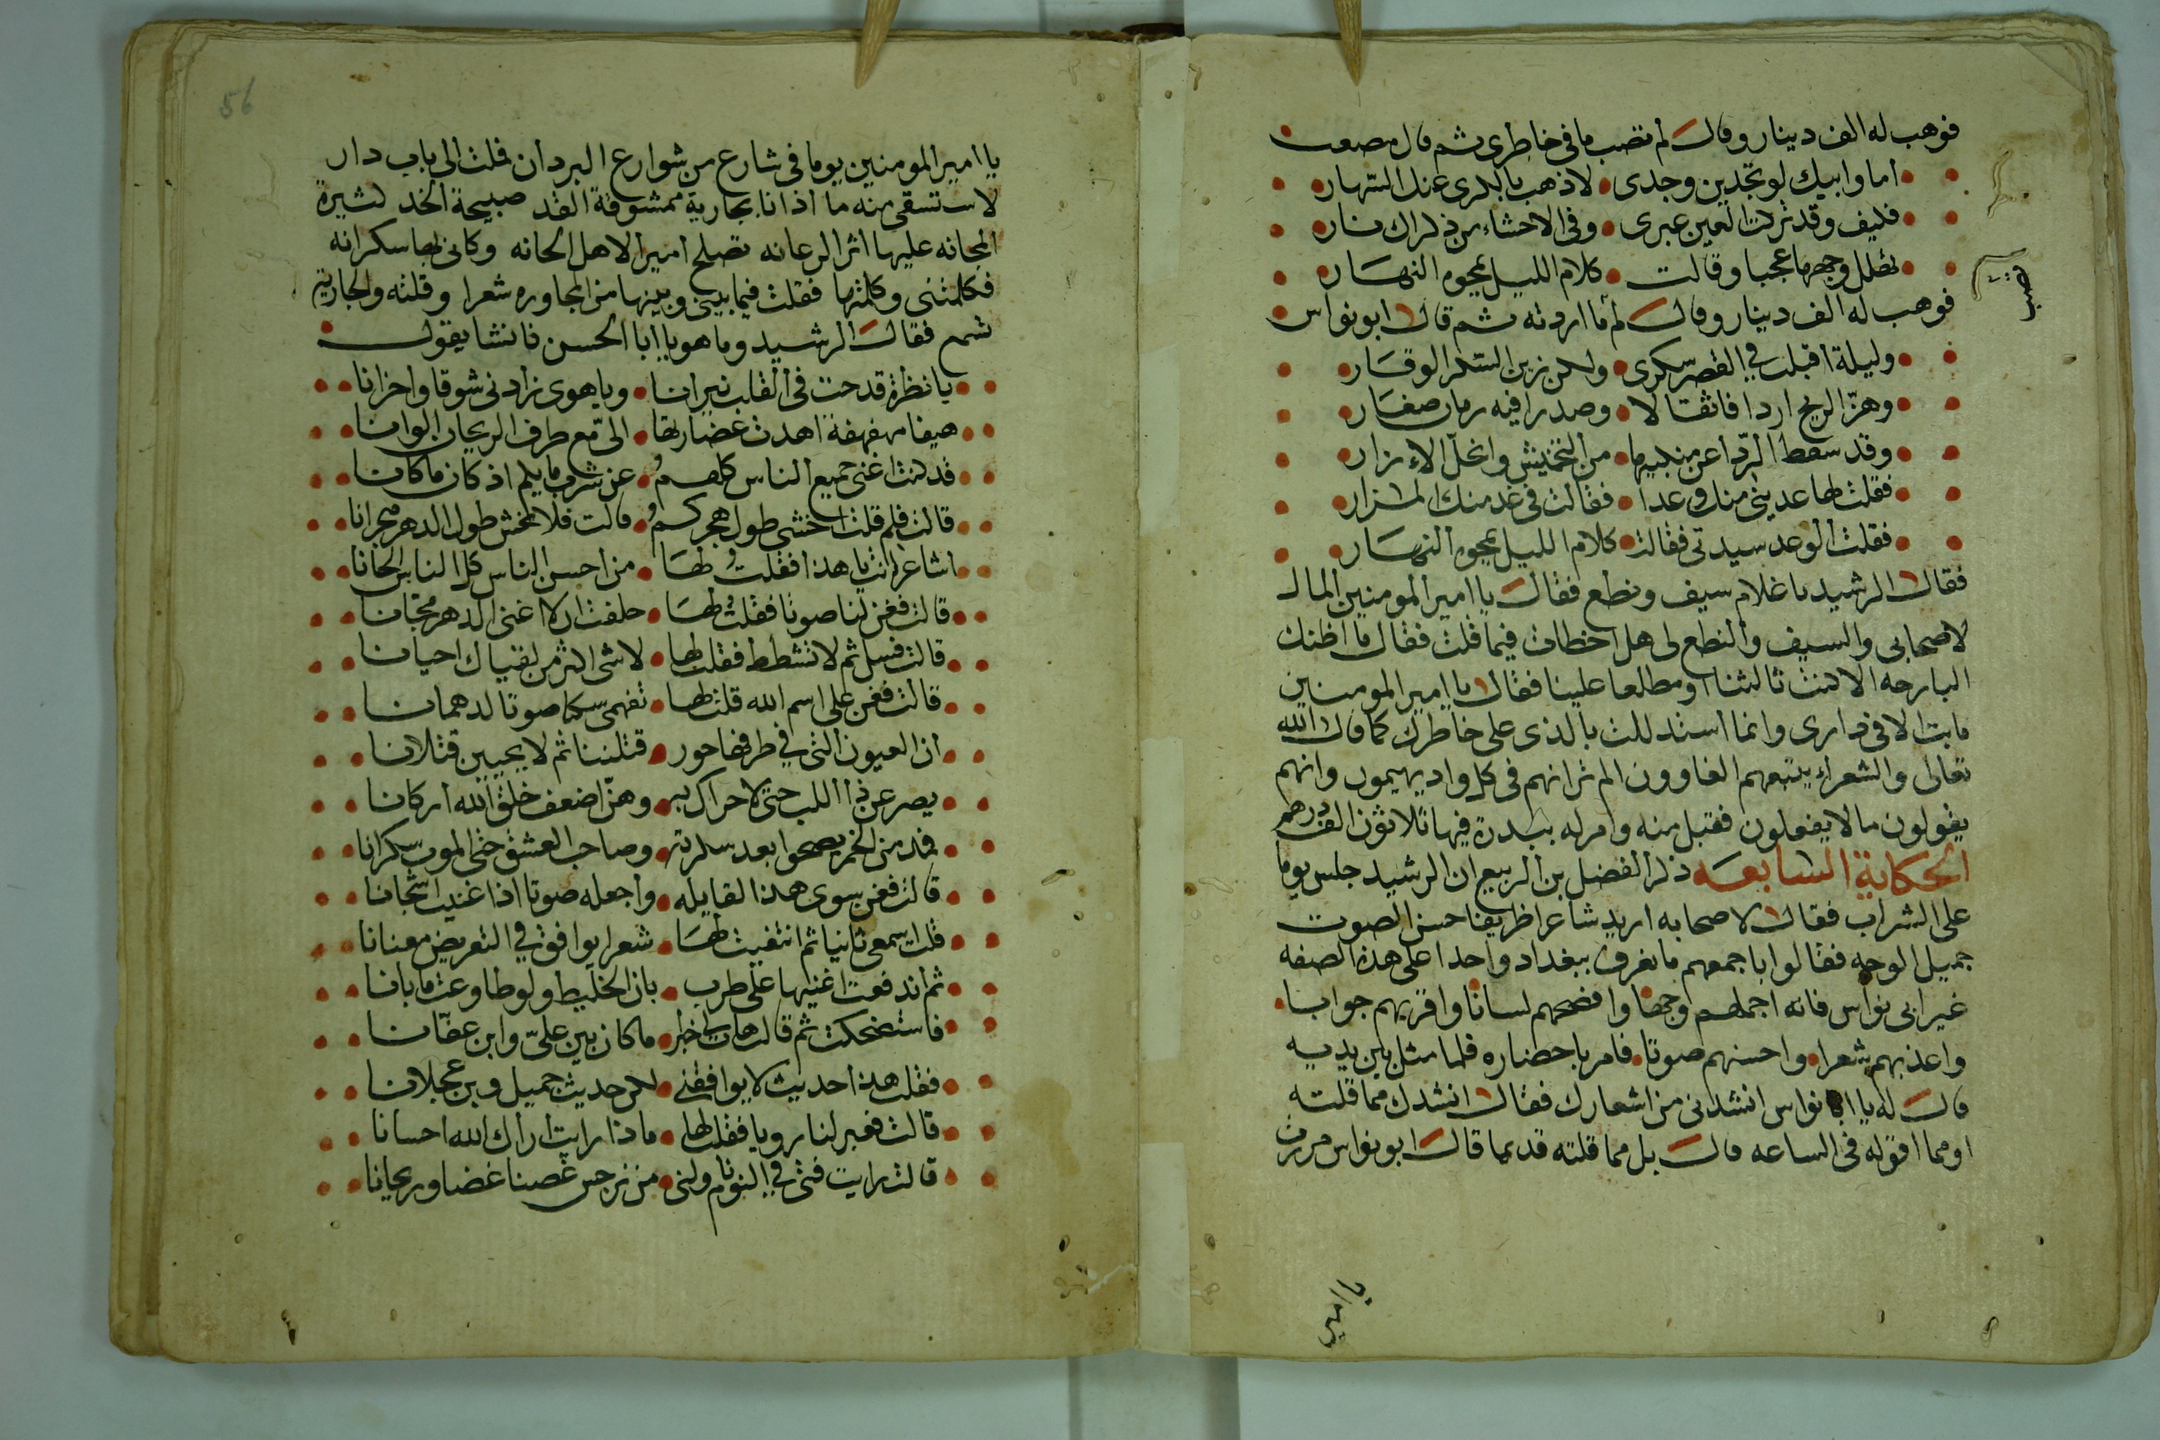 فوهب له الف دينار وقال لم تصب ما في خاطري ثم قال مصعب
اما وابيك لو تجدين وجدي لاذهب بالكرى عنك السهار
فكيف وقد تركت العين عبرى وفي الاحشاء من ذكراك نار
تظلل وجهها عجبا وقالت كلام الليل يمحوه النهار
فوهب له الف دينار وقال لم اما اردته ثم قال ابو نواس
وليلة اقبلت في القصر سكرى ولكن زين السكر الوقار
وهز الريح اردافا ثقالا وصدرا فيه رمان صغار
وقد سقط الردا عن منكبيها من التخميش وانحل الازار
فقلت لها عديني منك وعدا فقالت في غد منك المزار
فقلت الوعد سيدتي فقالت كلام الليل يمحوه النهار
فقال الرشيد يا غلام سيف ونطع فقال يا امير المومنين المال
لاصحابي والسيف والنطع لي هل اخطات فيما قلت فقال ما اظنك
البارحه الا كنت ثالثنا ومطلعا علينا فقال يا امير المومنين
ما بت الا في داري وانما استدللت بالذي على خاطرك كما قال الله
تعالى والشعراء يتبعهم الغاوون الم تر انهم في كل واد يهيمون وانهم
يقولون ما لا يفعلون فقبل منه وامر له ببدرة فيها ثلاثون الف درهم
الحكاية السابعه ذكر الفضل بن الربيع ان الرشيد جلس يوما
على الشراب فقال لاصحابه اريد شاعرا ظريفا حسن الصوت
جميل الوجه فقالوا باجمعهم ما نعرف ببغداد واحدا على هذه الصفه
غير ابي نواس فانه اجملهم وجها وافصحهم لسانا واقربهم جوابا
واعذبهم شعرا واحسنهم صوتا فامر باحضاره فلما مثل بين يديه
قال له يا ابا نواس انشدني من اشعارك فقال انشدك مما قلته
او مما اقوله في الساعه قال بل مما قلته قديما قال ابو نواس مررت
يا امير
56
يا امير المومنين يوما في شارع من شوارع البردان فملت الى باب دار
لاستسقي منه ما اذ انا بجارية ممشوقة القد صبيحة الخد كثيرة
المجانه عليها اثر الرعانه تصلح اميرا لاهل الحانه وكاني بها سكرانه
فكلمتني وكلمتها فقلت فيما بيني وبينها من المجاوره شعرا وقلته والجارية
تسمع فقال الرشيد وما هو يا ابا الحسن فانشا يقول
يا نظرة قدحت في القلب نيرانا ويا هوى زادني شوقا واحزانا
هيفا مهفهفة اهدت غضارتها الي مع طرف الريحان الوانا
قد كنت اغني جميع الناس كلهم عن شرب ما يلم اذ كان ما كانا
قالت فلم قلت اخشى طول هجركم قالت فلا تخش طول الدهر هجرانا
اشاعر انت يا هذا فقلت لها من احسن الناس كل الناس الحانا
قالت فغن لنا صوتا فقلت لها حلفت ان لا اغني الدهر مجانا
قالت فسل ثم لا تشطط فقلت لها لا شي اكثر من لقياك احيانا
قالت فغن على اسم الله قلت لها تفهمي سكنا صوتا لدهمانا
ان العيون التي في طرفها حور قتلننا ثم لا يحيين قتلانا
يصرعن ذا اللب حتى لا حراك به وهن اضعف خلق الله اركانا
فمدمن الخمر يصحوا بعد سكرته وصاحب العشق حتى الموت سكرانا
قالت فغن سوى هذا لقايله واجعله صوتا اذا غنيت اشجانا
قلت اسمعي ثانيا ثم انتقيت لها شعرا يوافق في التعريض معنانا
ثم اندفعت اغنيها على طرب بان الخليط ولو طاوعت ما بانا
فاستضحكت ثم قالت هات لي اخبر ما كان بين علي وابن عفانا
فقلت هذا حديث لا يوافقني لكن حديث جميل وبن عجلانا
قالت فعبر لنا رويا فقلت لها ماذا رايت اراك الله احسانا
قالت رايت فتى في النوم ناولني من نرجس غصنا غضا وريحانا